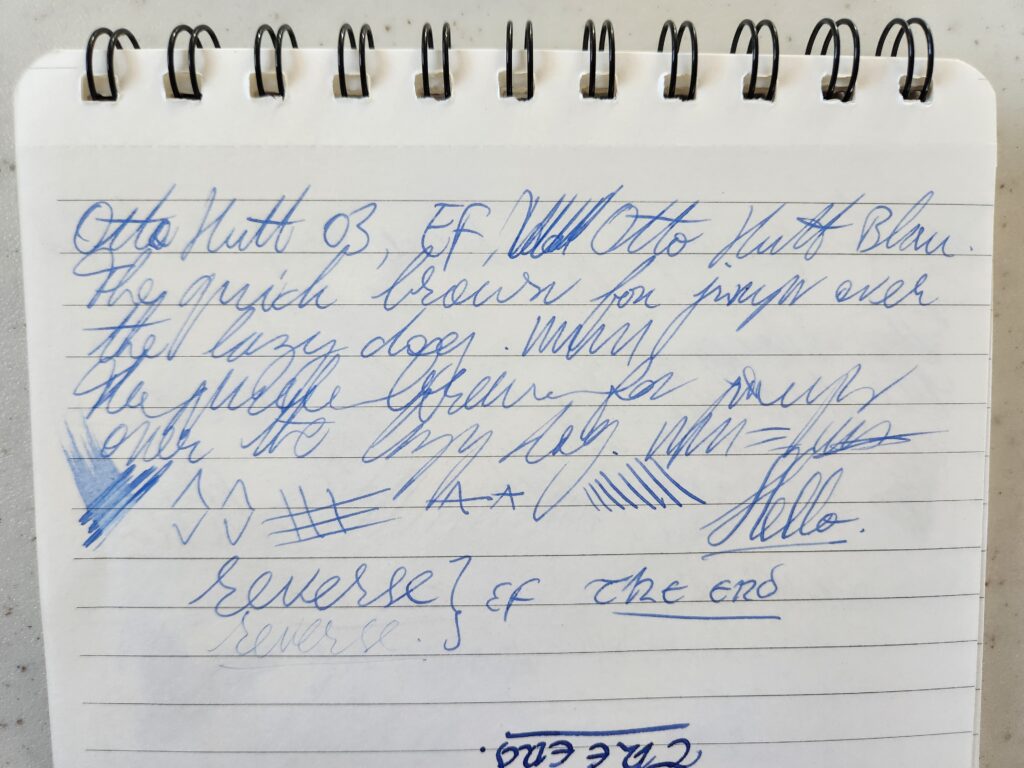 Otto Hutt 03, EF, Otto Hutt Blau.
The quick brown fox jumps over
the lazy dog. mmm
the quick brown fox jumps
over the lazy dog.
Hello.
reverse } EF THE END
reverse.
THE END.